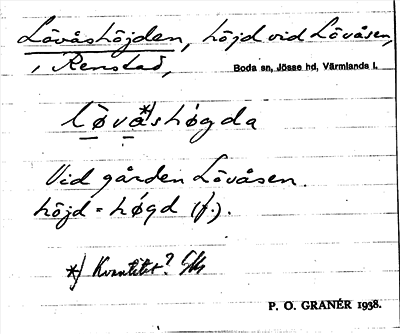 Lövåshöjden, höjd vid Lövåsen,
i Renstad, Boda sn, Jösse hd, Värmlands l.
lǿvå*)shǿgda
Vid gården Lövåsen.
höjd = hǿgd (f.).
*) Kvantitet?
P. O. GRANÉR 1938.